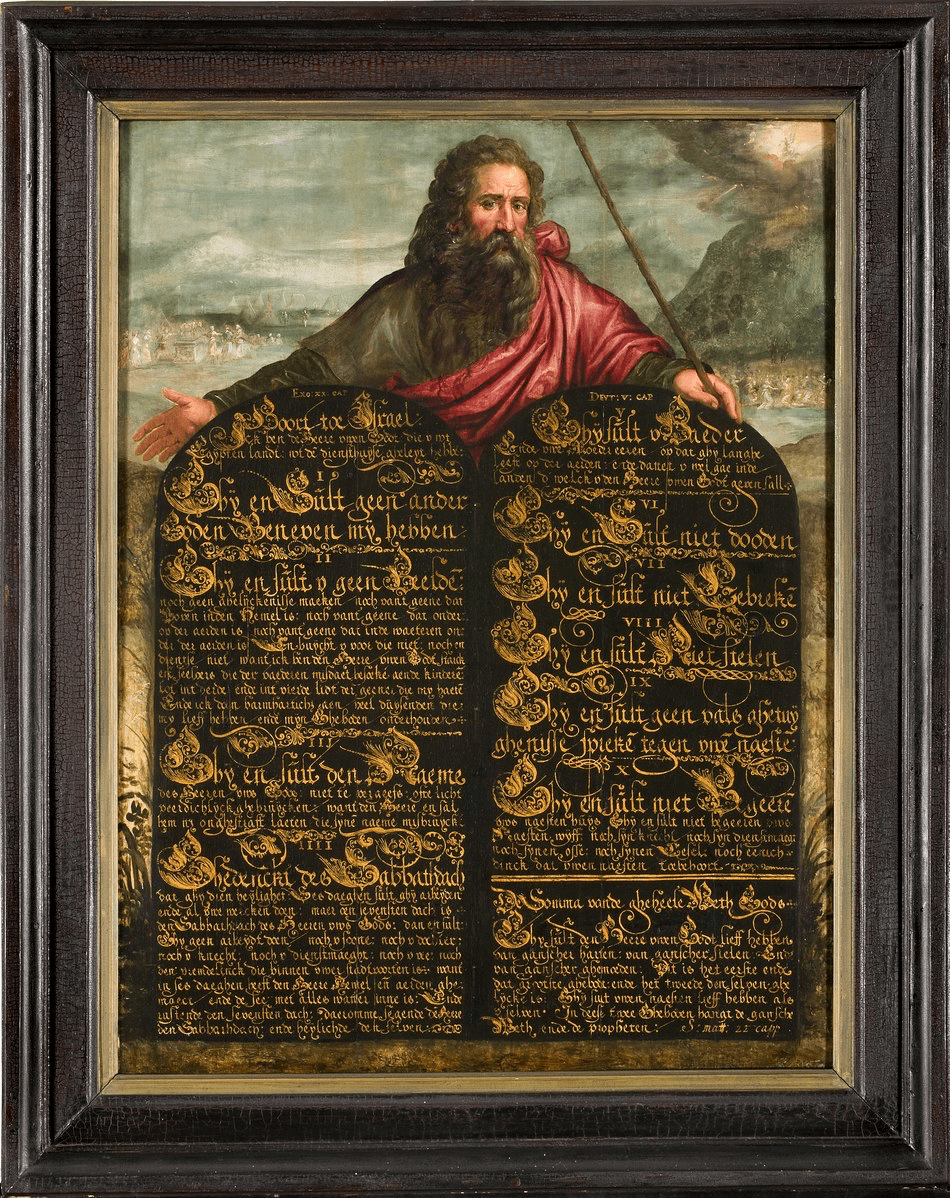 Exo: xx. cap
Hoort toe Israel.
Ick ben de Heere uwen Godt die u uyt
Egypten landt: uyt de diensthuyse geleyt hebbe:
I
Ghy en Sult geen ander
Goden Beneven my hebben
II
Ghy en sult u geen Beeldē:
noch geen ghelyckenisse maeken noch vant geene dat
Boven inden Hemel is: noch vant geene dat onder
op der aerden is noch vant geene dat inde waeteren on:
der der aerden is En buycht u voor die niet: noch en
dientse niet want ick ben den Heere uwen Godt starck
en Jeloers die der vaederen misdaet besoeke aende kindere
tot int derde ende int vierde lidt der geene die my haetē
Ende ick doen barmharticheyt aen veel duysenden die
my lieff hebben ende myn Gheboden onderhouden
III
Ghy en sult den Naeme
des Heeren uws Godts niet te vergeefs ofte licht
veerdichlyck ghebruycken: want den Heere en sal
hem nz onghestraft laeten die syne naeme misbruyck:
IIII
Ghedenckt des Sabbathdach
dat ghy dien heylighet Ses daeghen sult ghy arbeyden
ende al uwe wercken doen: maer den sevensten dach is
den Sabbathdach des Heeren uws Gods: dan en sult
Ghy geen arbeydt doen noch u soone: noch u dochter:
noch u knecht: noch u dienstmaeght noch u vee: noch
den vremdelinck die binnen uwer stadtpoorten is want
in ses daeghen heeft den Heere Hemel en aerden ghe
maect ende de See met alles watter inne is: Ende
ruste nde den sevensten dach: Daeromme segende de Heere
den Sabbathdach: ende heylichde den selven
Deut: v: cap
V
Ghy sult u Vaeder
Ende uwe Moeder eeren op dat ghy langhe
leeft op der aerden: e te dattet u wel gae inde
landen d welck u den Heere uwen Godt geven sall
VI
Ghy en Sult niet dooden
VII
Ghy en sult niet Eebrekē
VIII
Ghy en sult Niet stelen
IX
Ghy en sult geen vals ghetuy
ghenisse sprekē tegen uwē naeste
X
Ghy en sult niet Begeerē
uws naesten huys Ghy en sult niet begeeren uws
Naesten wyff noch syn knecht noch syn dienstmaegt
noch synen osse: noch synen Eesel: noch eenich
dinck dat uwen naesten toebehoort
De Somma vande gheheele Weth Gods
Ghy sult den Heere uwen Godt lieff hebben
van ganscher harten: van ganscher sielen Ende
van ganscher ghemoeden: Dit is het eerste ende
dat grootste ghebodt: ende het tweede den selven ghe
lyck is: Ghy sult uwen naesten lieff hebben als
u selven In deese twee Gheboden hangt de gansche
Weth, ende de propheten: S: matt 22 capp